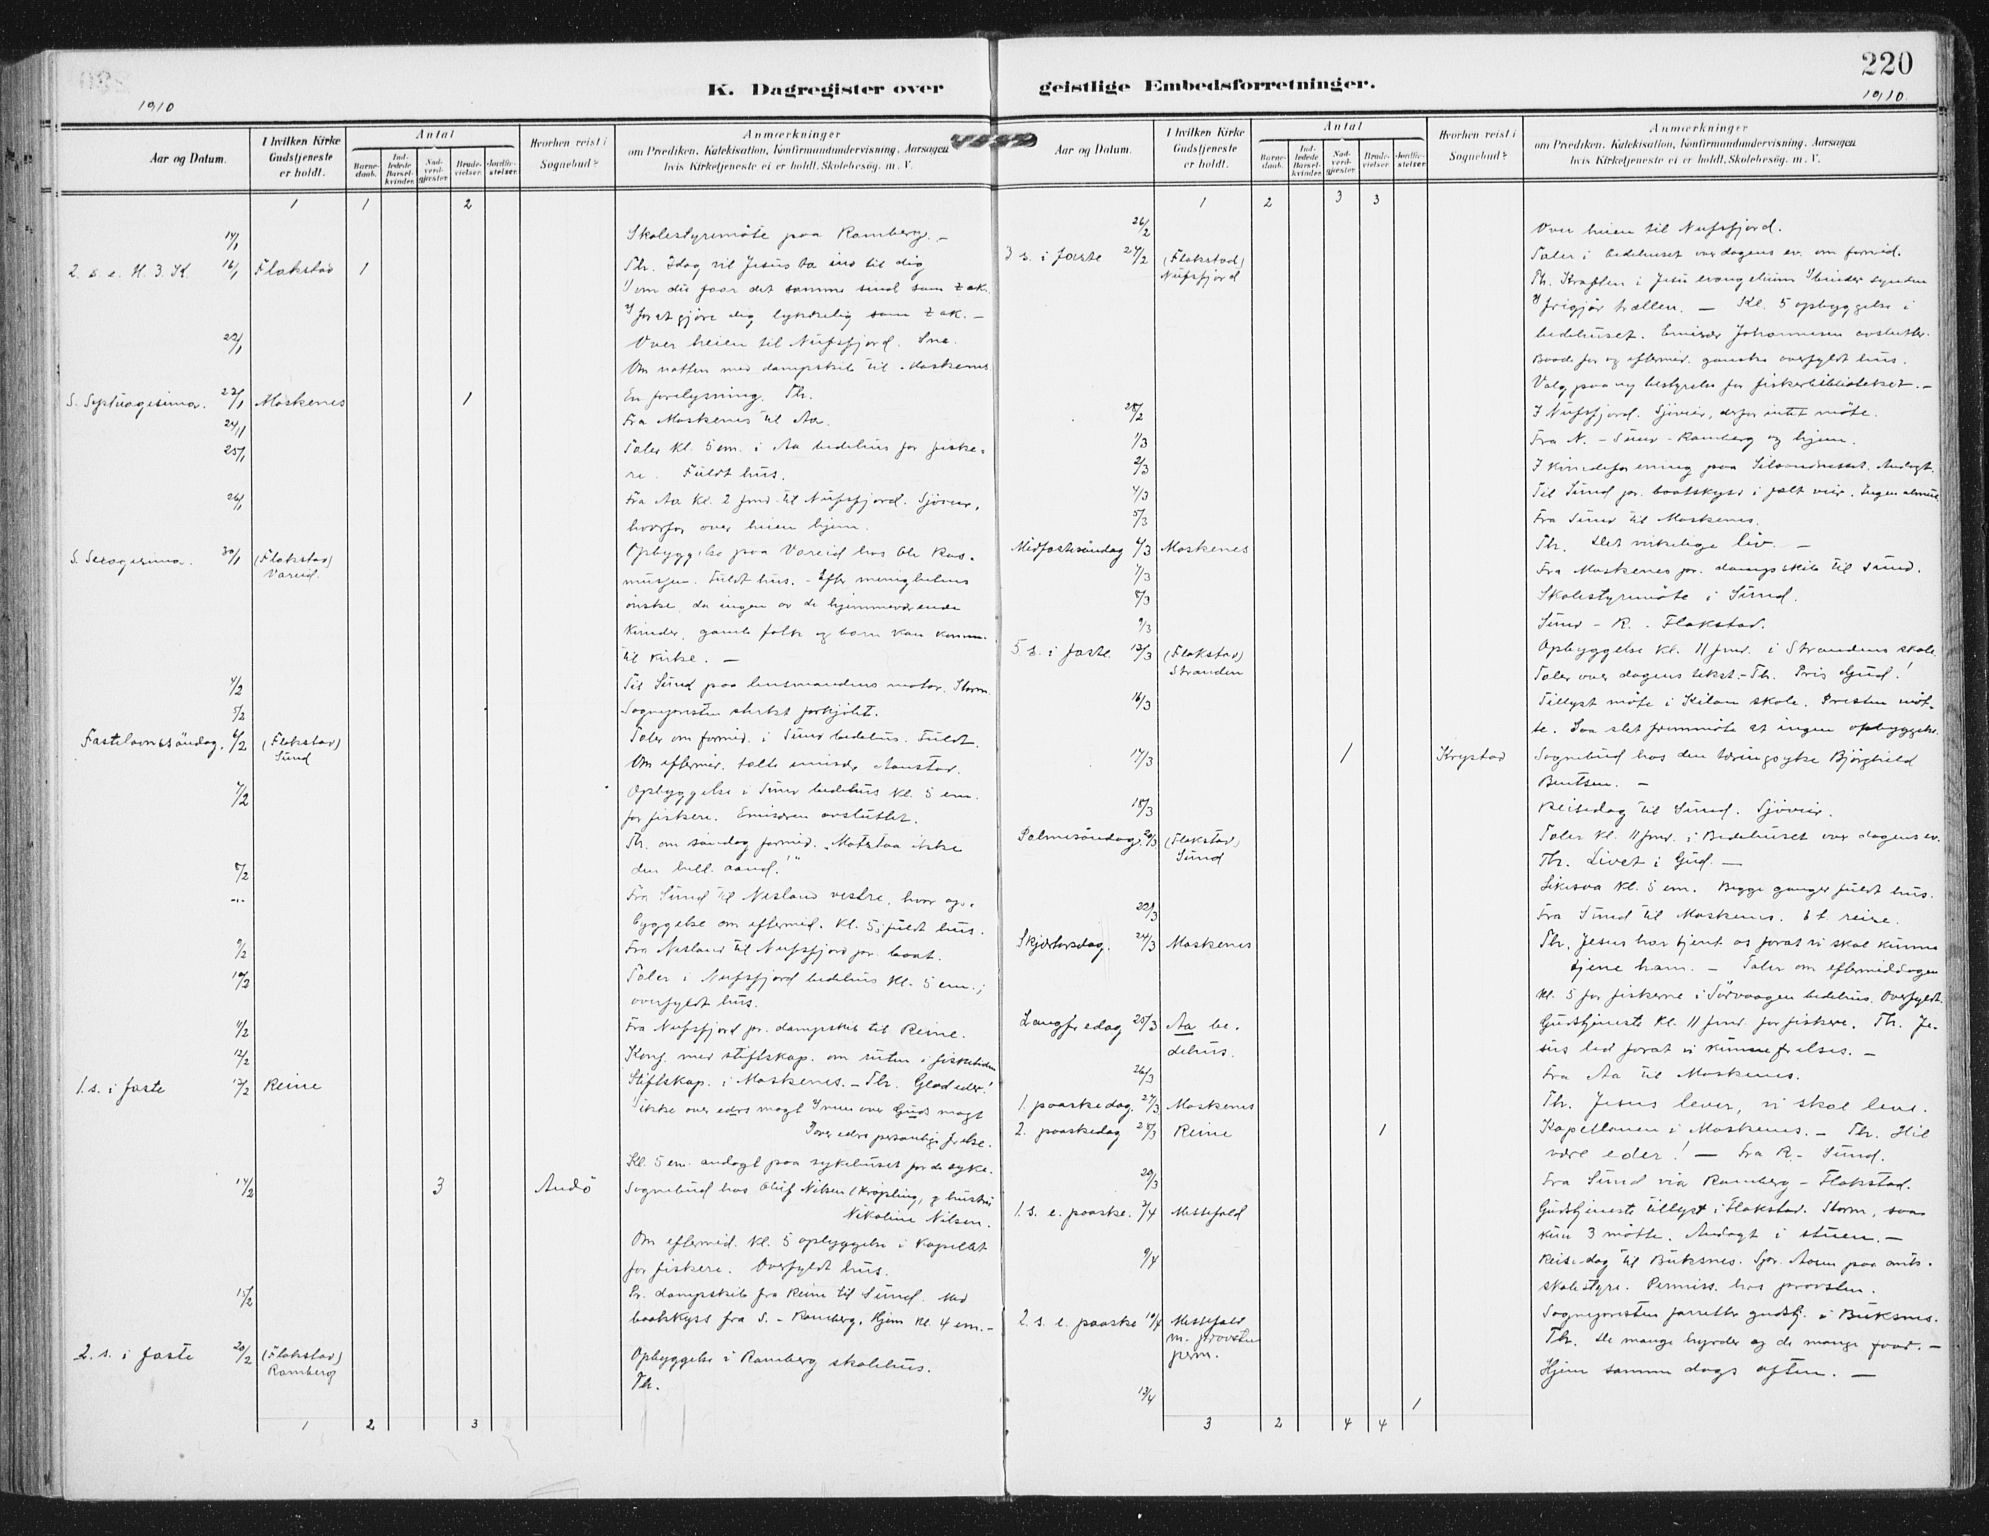 220
K. Dagregister over geistlige Embedsforretninger.
1910
1910.
Aar og Datum.
I hvilken Kirke Gudstjeneste er holdt.
Antal
Barne-daab.
Ind-ledede Barsel-kvinder.
Nad-verd-gjæster.
Brude-vielser.
Jordfæ-stelser.
Hvorhen reist i Sognebud?
Anmærkninger
om Prædiken, Katekisation, Konfirmandundervisning, Aarsagen
hvis Kirketjeneste ei er holdt, Skolebesøg. m. V.
1 1 2
14/1 Skolestyremöte paa Ramberg. –
2. s. e. H. 3. K. 16/1 Flakstad 1 Th. Idag vil Jesus ta ind til dig
1) om du faar det samme sind som Zak.
2) for at gjöre dig lykkelig som Zak. –
22/1 Over heien til Nufsfjord. Sne.
Om natten med dampskib til Moskenes
S. Septuagesima. 23/1 Moskenes 1 En forelysning. Th.
24/1 Fra Moskenes til Aa.
25/1 Taler kl. 5 em. i Aa bedehus for fiske-
re. Fuldt hus.
26/1 Fra Aa kl. 2 fmd. til Nufsfjord. Sjöveir,
hvorfor over heien hjem.
S. Sexagesima. 30/1 (Flakstad) Vareid. Opbyggelse paa Vareid hos Ole Ras-
mussen. Fuldt hus. – Efter menighetens
önske, da ingen av de hjemmeværende
kvinder, gamle folk og barn kan komme
til kirke. –
4/2 Til Sund paa lensmandens motor. Storm.
5/2 Sognepresten sterkt forkjölet.
Fastelavnssöndag. 6/2 (Flakstad) Sund Taler om formid. i Sund bedehus. Fuldt.
Om eftermid. talte emissær Aanstad.
7/2 Opbyggelse i Sund bedehus kl. 5 em.
for fiskere. Emissæren avsluttet.
Th. om söndag formid. "Motstaa ikke
den hell. aand!"
8/2
... Fra Sund til Nesland vestre, hvor op-
byggelse om eftermid. kl. 5; fuldt hus.
9/2 Fra Nesland til Nufsfjord pr. baat.
10/2 Taler i Nufsfjord bedehus kl. 5 em.;
overfyldt hus.
11/2 Fra Nufsfjord pr. dampskib til Reine.
12/2 Konf. med stiftskap. om ruten i fisketiden
1. s. i faste 13/2 Reine Stiftskap. i Moskenes. – Th. Glæd eder!
1) ikke over edrs magt 2) men over Guds magt
3) over edrs personlige frelse.
Kl. 5 em. andagt paa sykehuset for de syke.
14/2 3 Andö Sognebud hos Oluf Nilsen (kröpling) og hustru
Nikoline Nilsen.
Om eftermid. kl. 5 opbyggelse i kapellet
for fiskere. Overfyldt hus.
15/2 Pr. dampskib fra Reine til Sund. Med
baatskyss fra S. – Ramberg. Hjem kl. 4 em. –
2. s. i faste 20/2 (Flakstad) Ramberg Opbyggelse i Ramberg skolehus.
Th.
1 2 3
Aar og Datum.
I hvilken Kirke Gudstjeneste er holdt.
Antal
Barne-daab.
Ind-ledede Barsel-kvinder.
Nad-verd-gjæster.
Brude-vielser.
Jordfæ-stelser.
Hvorhen reist i Sognebud?
Anmærkninger
om Prædiken, Katekisation, Konfirmandundervisning, Aarsagen
hvis Kirketjeneste ei er holdt, Skolebesøg. m. V.
1 2 3 3
26/2 Over heien til Nufsfjord.
3 s. i faste 27/2 (Flakstad) Nufsfjord Taler i bedehuset over dagens ev. om formid.
Th. Kraften i Jesu evangelium 1) binder synden
2) frigjör trællen. – Kl. 5 opbyggelse i
bedehuset. Emissær Johannesen avslutter.
Baade for og eftermid. ganske overfyldt hus.
Valg paa ny bestyrelse for fiskerbiblioteket. –
28/2 I Nufsfjord. Sjöveir, derfor intet möte.
1/3 Fra N. – Sund – Ramberg og hjem.
2/3 I kvindeforening paa Silsandnesset. Andagt.
4/3 Til Sund pr. baatskyss i fælt veir.
5/3 Fra Sund til Moskenes.
Midfastesöndag 6/3 Moskenes Th. Det virkelige liv. –
7/3 Fra Moskenes pr. dampskib til Sund.
8/3 Skolestyremöte i Sund.
9/3 Sund – R. – Flakstad.
5 s. i faste 13/3 (Flakstad) Stranden Opbyggelse kl. 11 fmd. i Strandens skole.
Taler over dagens tekst. – Th. Pris Gud!
16/3 Tillyst möte i Kilan skole. Presten möt-
te. Saa slet fremmöte at ingen opbyggelse.
17/3 1 Krystad Sognebud hos den tæringsyke Björghild
Bentsen. –
18/3 Reisedag til Sund. Sjöveir.
Palmesöndag. 20/3 (Flakstad) Sund Taler kl. 11 fmd. i Bedehuset over dagens ev.
Th. Livet i Gud. –
Likesaa kl. 5 em. Begge ganger fuldt hus.
22/3 Fra Sund til Moskenes. Et reise.
Skjærtorsdag. 24/3 Moskenes Th. Jesus har tjent os forat vi skal kunne
tjene ham. – Taler om eftermiddagen
kl. 5 for fiskerne i Sörvaagen bedehus. Overfyldt.
Langfredag 25/3 Aa be-
dehus. Gudstjeneste kl. 11 fmd. for fiskere. Th. Je-
sus led forat vi kunne frelses. –
26/3 Fra Aa til Moskenes.
1. paaskedag. 27/3 Moskenes Th. Jesus lever, vi skal leve.
2. paaskedag 28/3 Reine 1 Kapellanen i Moskenes. – Th. Hil
være eder! – Fra R. – Sund.
29/3 Fra Sund via Ramberg – Flakstad.
1. s. e. paaske. 3/4 Messefald Gudstjeneste tillyst i Flakstad. Storm, saa
kun 3 mötte. Andagt i stuen. –
9/4 Reisedag til Buksnes. Spr. Aasen paa amts-
skolestyre. Permiss. hos provsten.
2. s. e. paaske 10/4 Messefald
m. provstens
perm. Sognepresten forretter gudstj. i Buksnes.
Th. De mange hyrder og de mange faar. –
Hjem samme dags aften. –
13/4 1
3 2 4 4